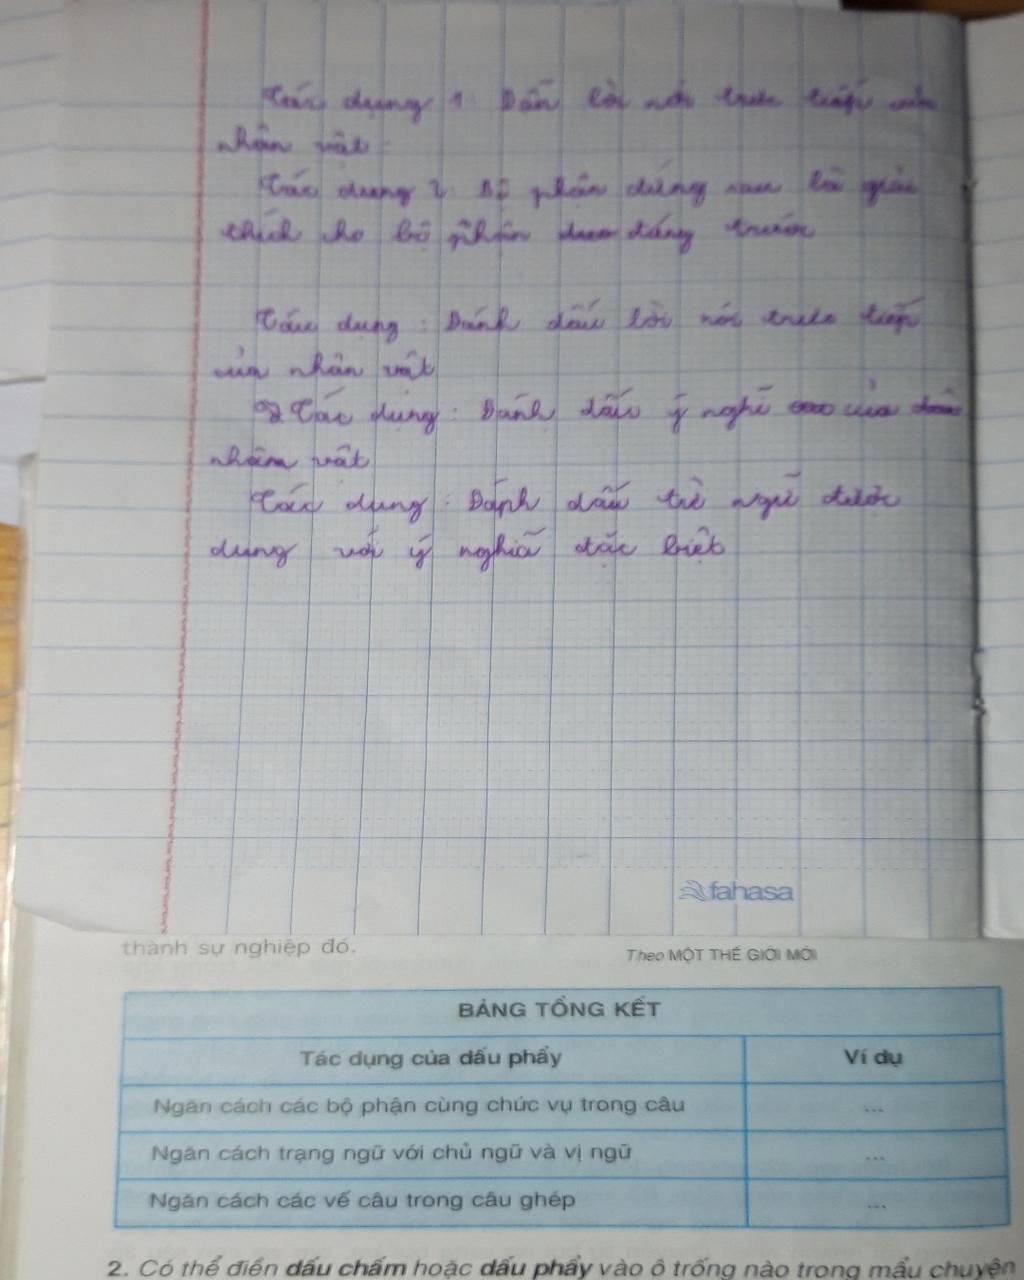 Tác dụng 1: Dẫn lời nói trực tiếp của
nhân vật
Tác dụng 2: Bộ phận đứng sau là giải
thích cho bộ phận đứng trước
Tác dụng: Đánh dấu lời nói trực tiếp
của nhân vật
Tác dụng: Đánh dấu ý nghĩ của
nhân vật
Tác dụng: Đánh dấu từ ngữ được
dùng với ý nghĩa đặc biệt
fahasa
thành sự nghiệp đó.
Theo MỘT THẾ GIỚI MỚI
BẢNG TỔNG KẾT
Tác dụng của dấu phẩy Ví dụ
Ngăn cách các bộ phận cùng chức vụ trong câu ...
Ngăn cách trạng ngữ với chủ ngữ và vị ngữ ...
Ngăn cách các vế câu trong câu ghép ...
2. Có thể điền dấu chấm hoặc dấu phẩy vào ô trống nào trong mẩu chuyện